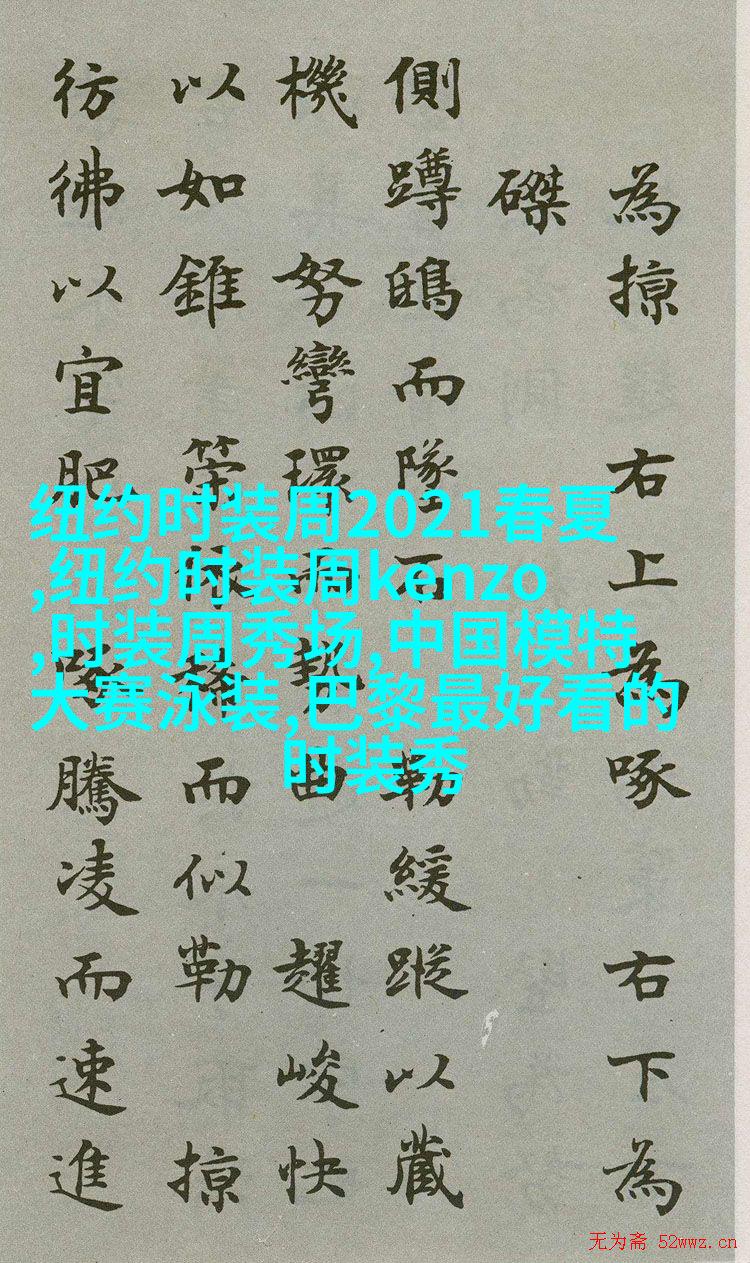 為掠 右上為啄 右下為
磔
側蹲鴟而隊石 勒緩蹤以藏
機 努彎環而勢曲 趯峻快
以如錐 策 而似勒 掠
彷彿以宜肥 騰凌而速進
纽约时装周2021春夏
,纽约时装周kenzo
,时装周秀场,中国模特
大赛泳装,巴黎最好看的
时装秀
无为斋 52wwz.cn